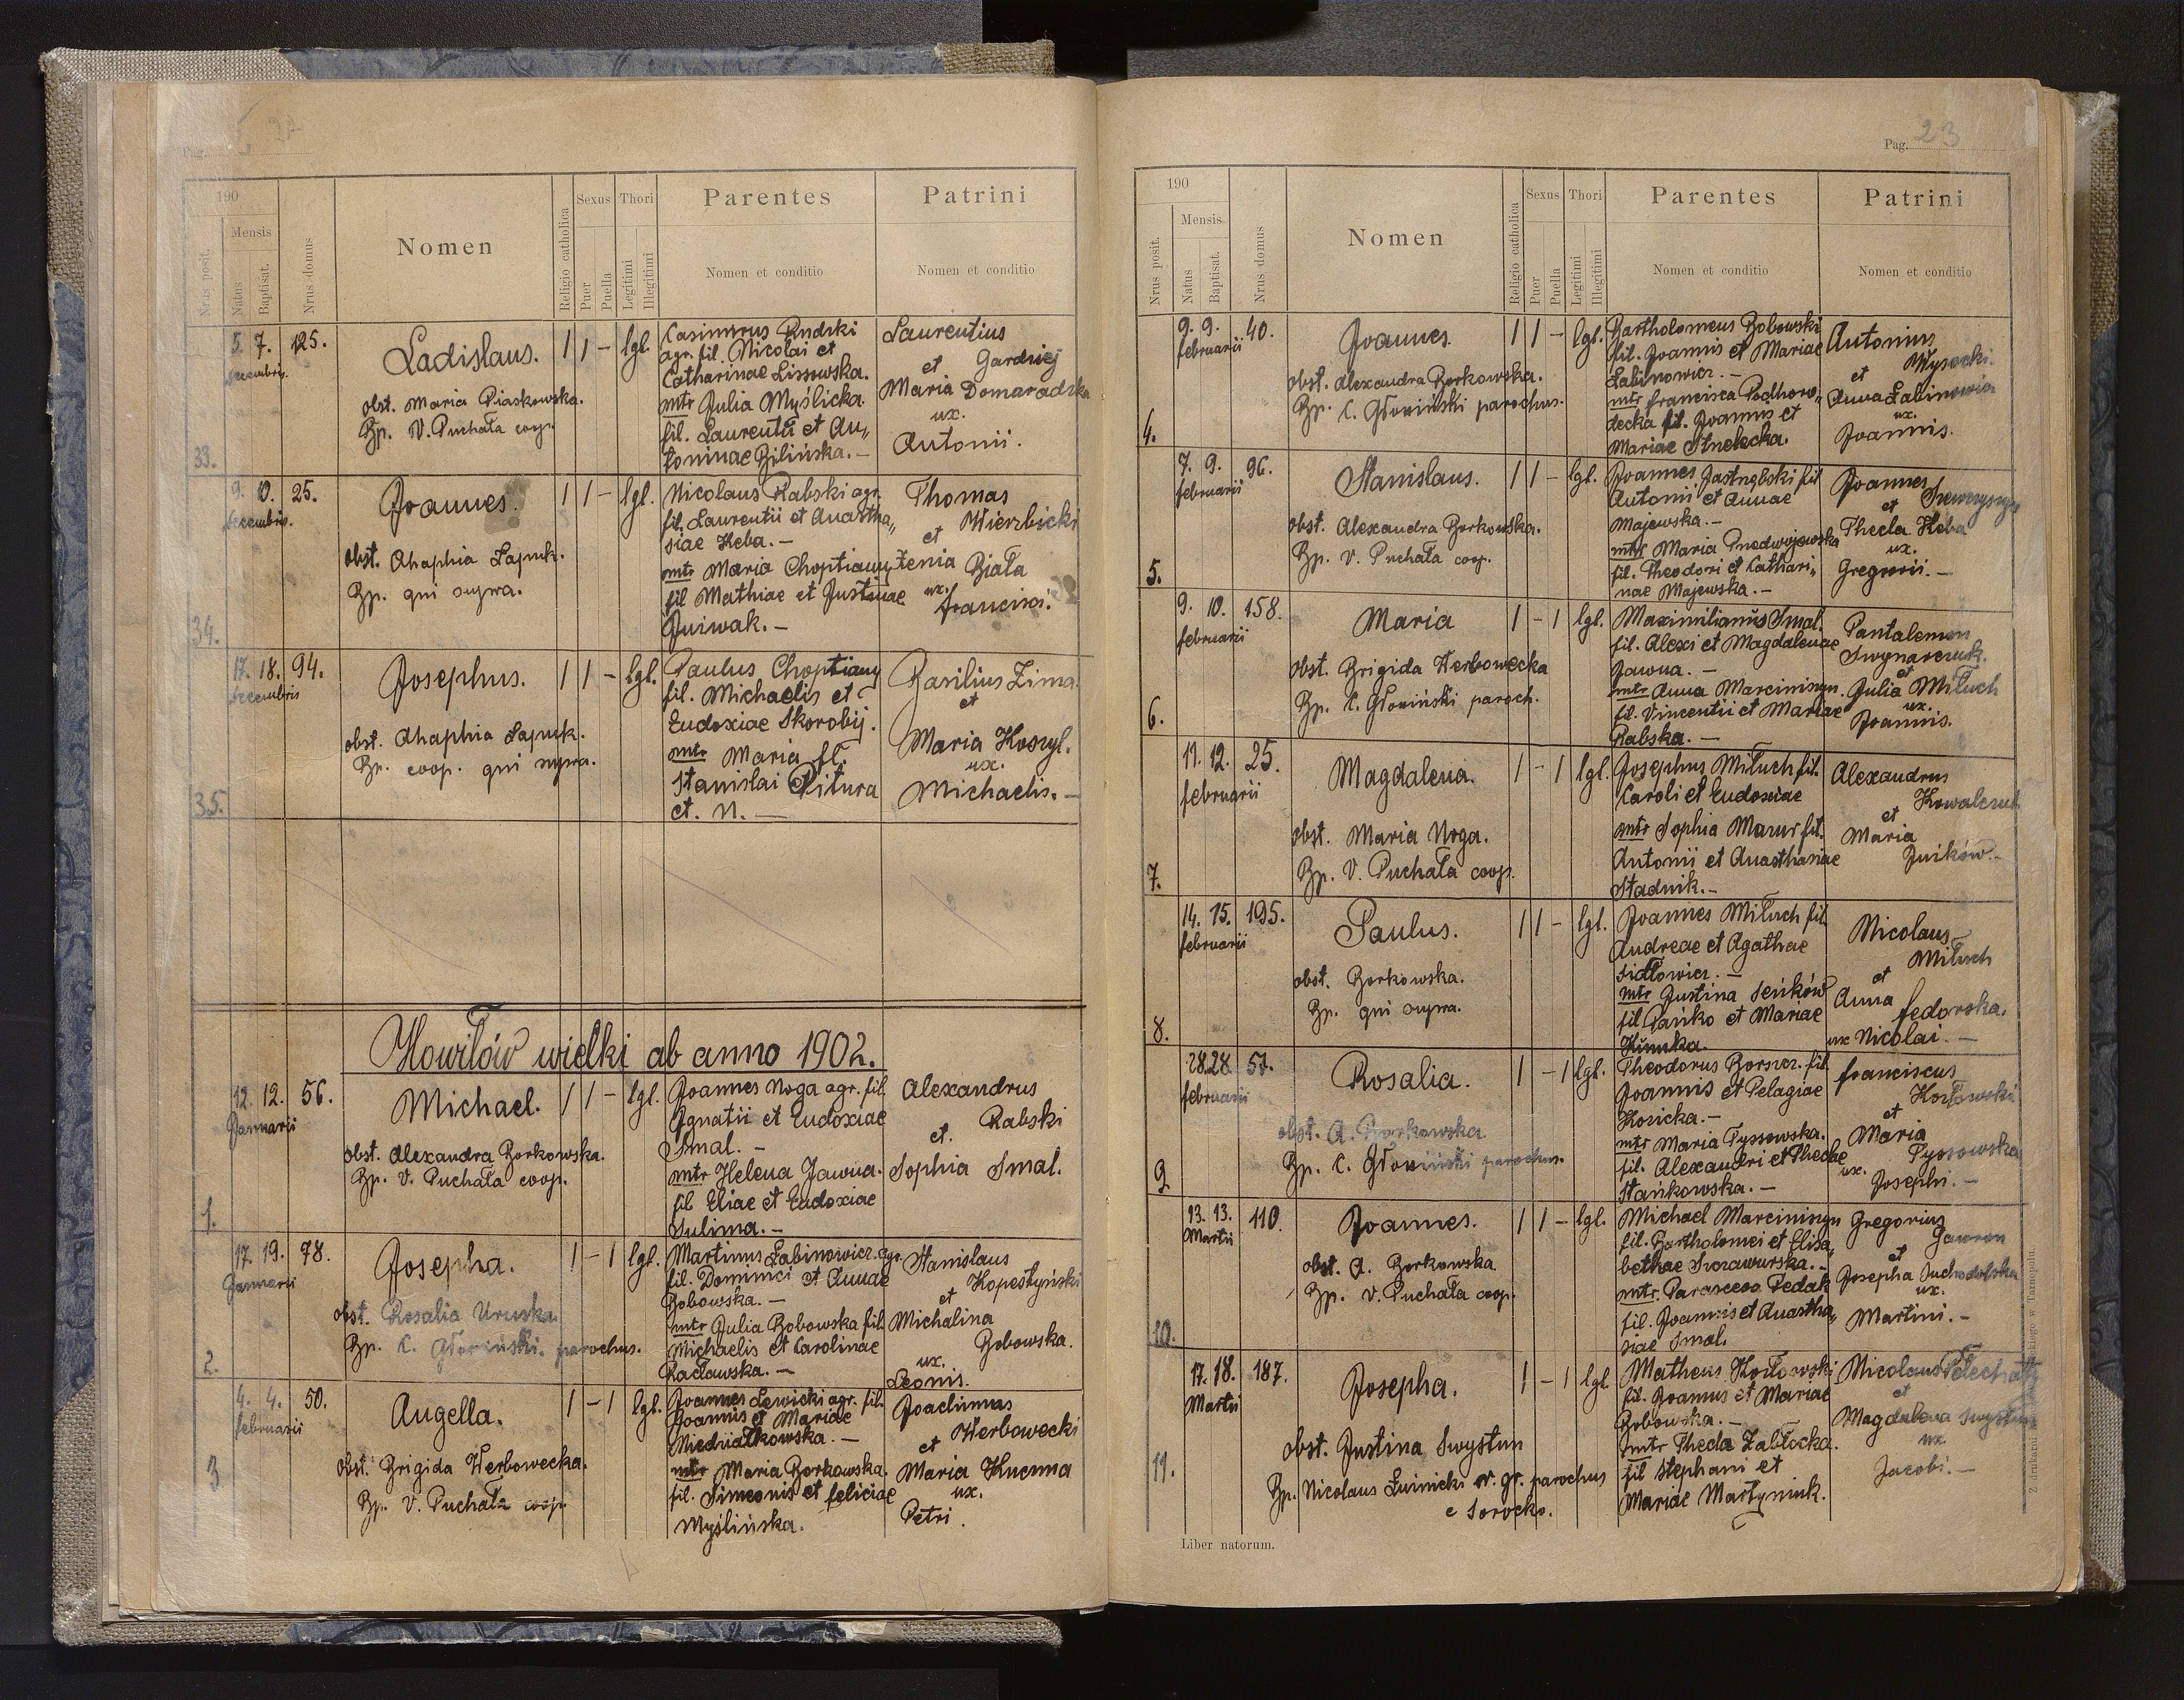 Pag.
190
Nrus posit.
Mensis
Natus
Baptisat.
Nrus domus
Nomen
Religio catholica
Sexus
Puer
Puella
Thori
Legitimi
Illegitimi
Parentes
Nomen et conditio
Patrini
Nomen et conditio
33.
5. 7. 125.
decembris.
Ladislaus.
1 1 - lgl.
obst. Maria Piaskowska.
Bp. V. Puchała coop.
Casimirus Rudzki
agr. fil. Nicolai et
Catharinae Lissowska.
mtr Julia Myślicka
fil. Laurentii et An„
toninae Bilińska. -
Laurentius
et Gardziej
Maria Domaradzka
ux.
Antonii.
34.
9. 10. 25.
decembris.
Joannes.
1 1 - lgl.
obst. Ahaphia Łapuk.
Bp. qui supra.
Nicolaus Rabski agr.
fil. Laurentii et Anastha„
siae Heba. -
mtr Maria Choptiany
fil Mathiae et Justinae
Thomas
Wierzbicki
et
Xenia Biała
ux.
Francisci.
35.
17. 18. 94.
decembris
Josephus.
1 1 - lgl.
obst. Ahaphia Łapuk.
Bp. coop. qui supra.
Paulus Choptiany
fil. Michaelis et
Eudoxiae Skorobij.
mtr Maria fil.
Stanislai Pitura
et. N. -
Basilius Zima
et
Maria Koszyl.
ux.
Michaelis. -
Howiłów wielki ab anno 1902.
1.
12. 12. 56.
Januarii
Michael.
1 1 - lgl.
obst. Alexandra Borkowska.
Bp. V. Puchała coop.
Joannes Noga agr. fil.
Ignatii et Eudoxiae
Smal. -
mtr Helena Jawna.
fil Eliae et Eudoxiae
Sulima. -
Alexandrus
Rabski
et.
Sophia Smal.
2.
17. 19. 78.
Januarii
Josepha.
1 - 1 lgl.
obst. Rosalia Uruska.
Bp. C. Głowiński. parochus.
Martinus Łabinowicz. agr.
fil. Dominici et Annae
Bobowska. -
mtr Julia Bobowska fil.
Michaelis et Carolinae
Racławska. -
Stanislaus
Kopestyński
et
Michalina
Bobowska.
ux.
Leonis.
3
4. 4. 50.
februarii
Angella.
1 - 1 lgl.
obst. Brigida Werbowecka.
Bp. V. Puchała coop.
Joannes Lewicki agr. fil.
Joannis et Mariae
Niedziałkowska. -
mtr Maria Borkowska.
fil. Simeonis et feliciae
Myślińska.
Joachimus
Werbowecki
et
Maria Kucma
ux.
Petri.
Pag. 23
190
Nrus posit.
Mensis
Natus
Baptisat.
Nrus domus
Nomen
Religio catholica
Sexus
Puer
Puella
Thori
Legitimi
Illegitimi
Parentes
Nomen et conditio
Patrini
Nomen et conditio
4.
9. 9. 40.
februarii
Joannes.
1 1 - lgl.
obst. Alexandra Borkowska.
Bp. C. Głowiński parochus.
Bartholomeus Bobowski
fil. Joannis et Mariae
Łabinowicz. -
mtr francisca Podhoro„
decka fil. Joannis et
Mariae Strzelecka.
Antonius
Wysocki
et
Anna Łabinowicz
ux.
Joannis.
5.
7. 9. 96.
februarii
Stanislaus.
1 1 - lgl.
obst. Alexandra Borkowska.
Bp. V. Puchała coop.
Joannes Jastrzębski fil
Antonii et Annae
Majewska. -
mtr Maria Przedwojewska
fil. Theodori et Cathari„
nae Majewska. -
Joannes
et
Thecla Heba
ux.
Gregorii. -
6.
9. 10. 158.
februarii
Maria
1 - 1 lgl.
obst. Brigida Werbowecka
Bp. C. Głowiński paroch.
Maximilianus Smal.
fil. Alexi et Magdalenae
Jawna. -
mtr Anna Marciniszyn.
fil. Vincentii et Mariae
Rabska. -
Pantalemon
Swynarczuk.
et
Julia Miłuch
ux.
Joannis.
7.
11. 12. 25.
februarii
Magdalena.
1 - 1 lgl.
obst. Maria Noga.
Bp. V. Puchała coop.
Josephus Miłuch fil.
Caroli et Eudoxiae
mtr Sophia Mazur fil.
Antonii et Anasthasiae
Stadnik. -
Alexandrus
Kowalczuk
et
Maria
8.
14. 15. 195.
februarii
Paulus.
1 1 - lgl.
obst. Borkowska.
Bp. qui supra.
Joannes Miłuch fil.
Andreae et Agathae
Sidłowicz. -
mtr Justina Seńków
fil Pańko et Mariae
Nicolaus
Miłuch
et
Anna fedorska.
ux Nicolai. -
9
28. 28. 57.
februarii
Rosalia.
1 - 1 lgl.
obst. A. Borkowska
Bp. C. Głowiński parochus.
Theodorus Borszcz. fil.
Joannis et Pelagiae
Kosicka. -
mtr Maria Tyssowska.
fil. Alexandri et Theclae
Stańkowska. -
franciscus
Kozłowski
et
Maria
Tyssowska
ux.
Josephi. -
10.
13. 13. 110.
Martii
Joannes.
1 1 - lgl.
obst. A. Borkowska
Bp. V. Puchała coop.
Michael Marciniszyn
fil. Bartholomei et Elisa„
bethae Szczawurska. -
mtr. Parasceva Pedak
fil. Joannis et Anastha„
siae Smal.
Gregorius
Gawron
et
Josepha Suchodolska
ux.
Martini. -
11.
17. 18. 187.
Martii
Josepha.
1 - 1 lgl.
obst. Justina Swystun
Bp. Nicolaus Żuinicki r. gr. parochus
e Sorocko.
Matheus Kozłowski
fil. Joannis et Mariae
Bobowska. -
mtr Thecla Zabłocka.
fil Stephani et
Mariae Martyniuk.
Nicolaus Pełechaty
et
Magdalena Swystun
ux
Jacobi. -
Liber natorum.